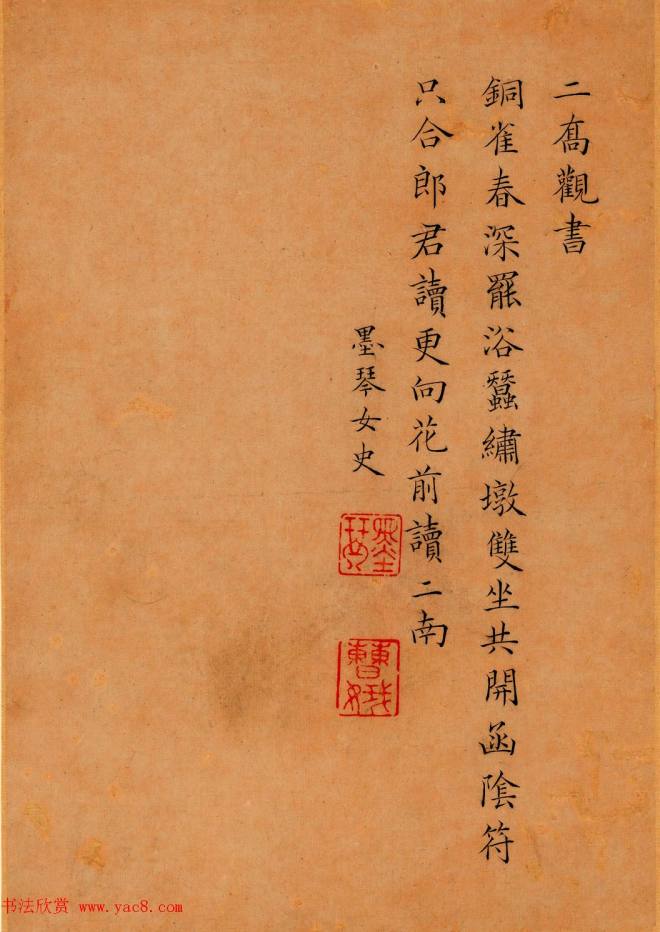 二喬觀書
銅雀春深罷浴蠶繡墩雙坐共開函陰符
只合郎君讀更向花前讀二南
墨琴女史
墨琴
书法欣赏 www.yac8.com